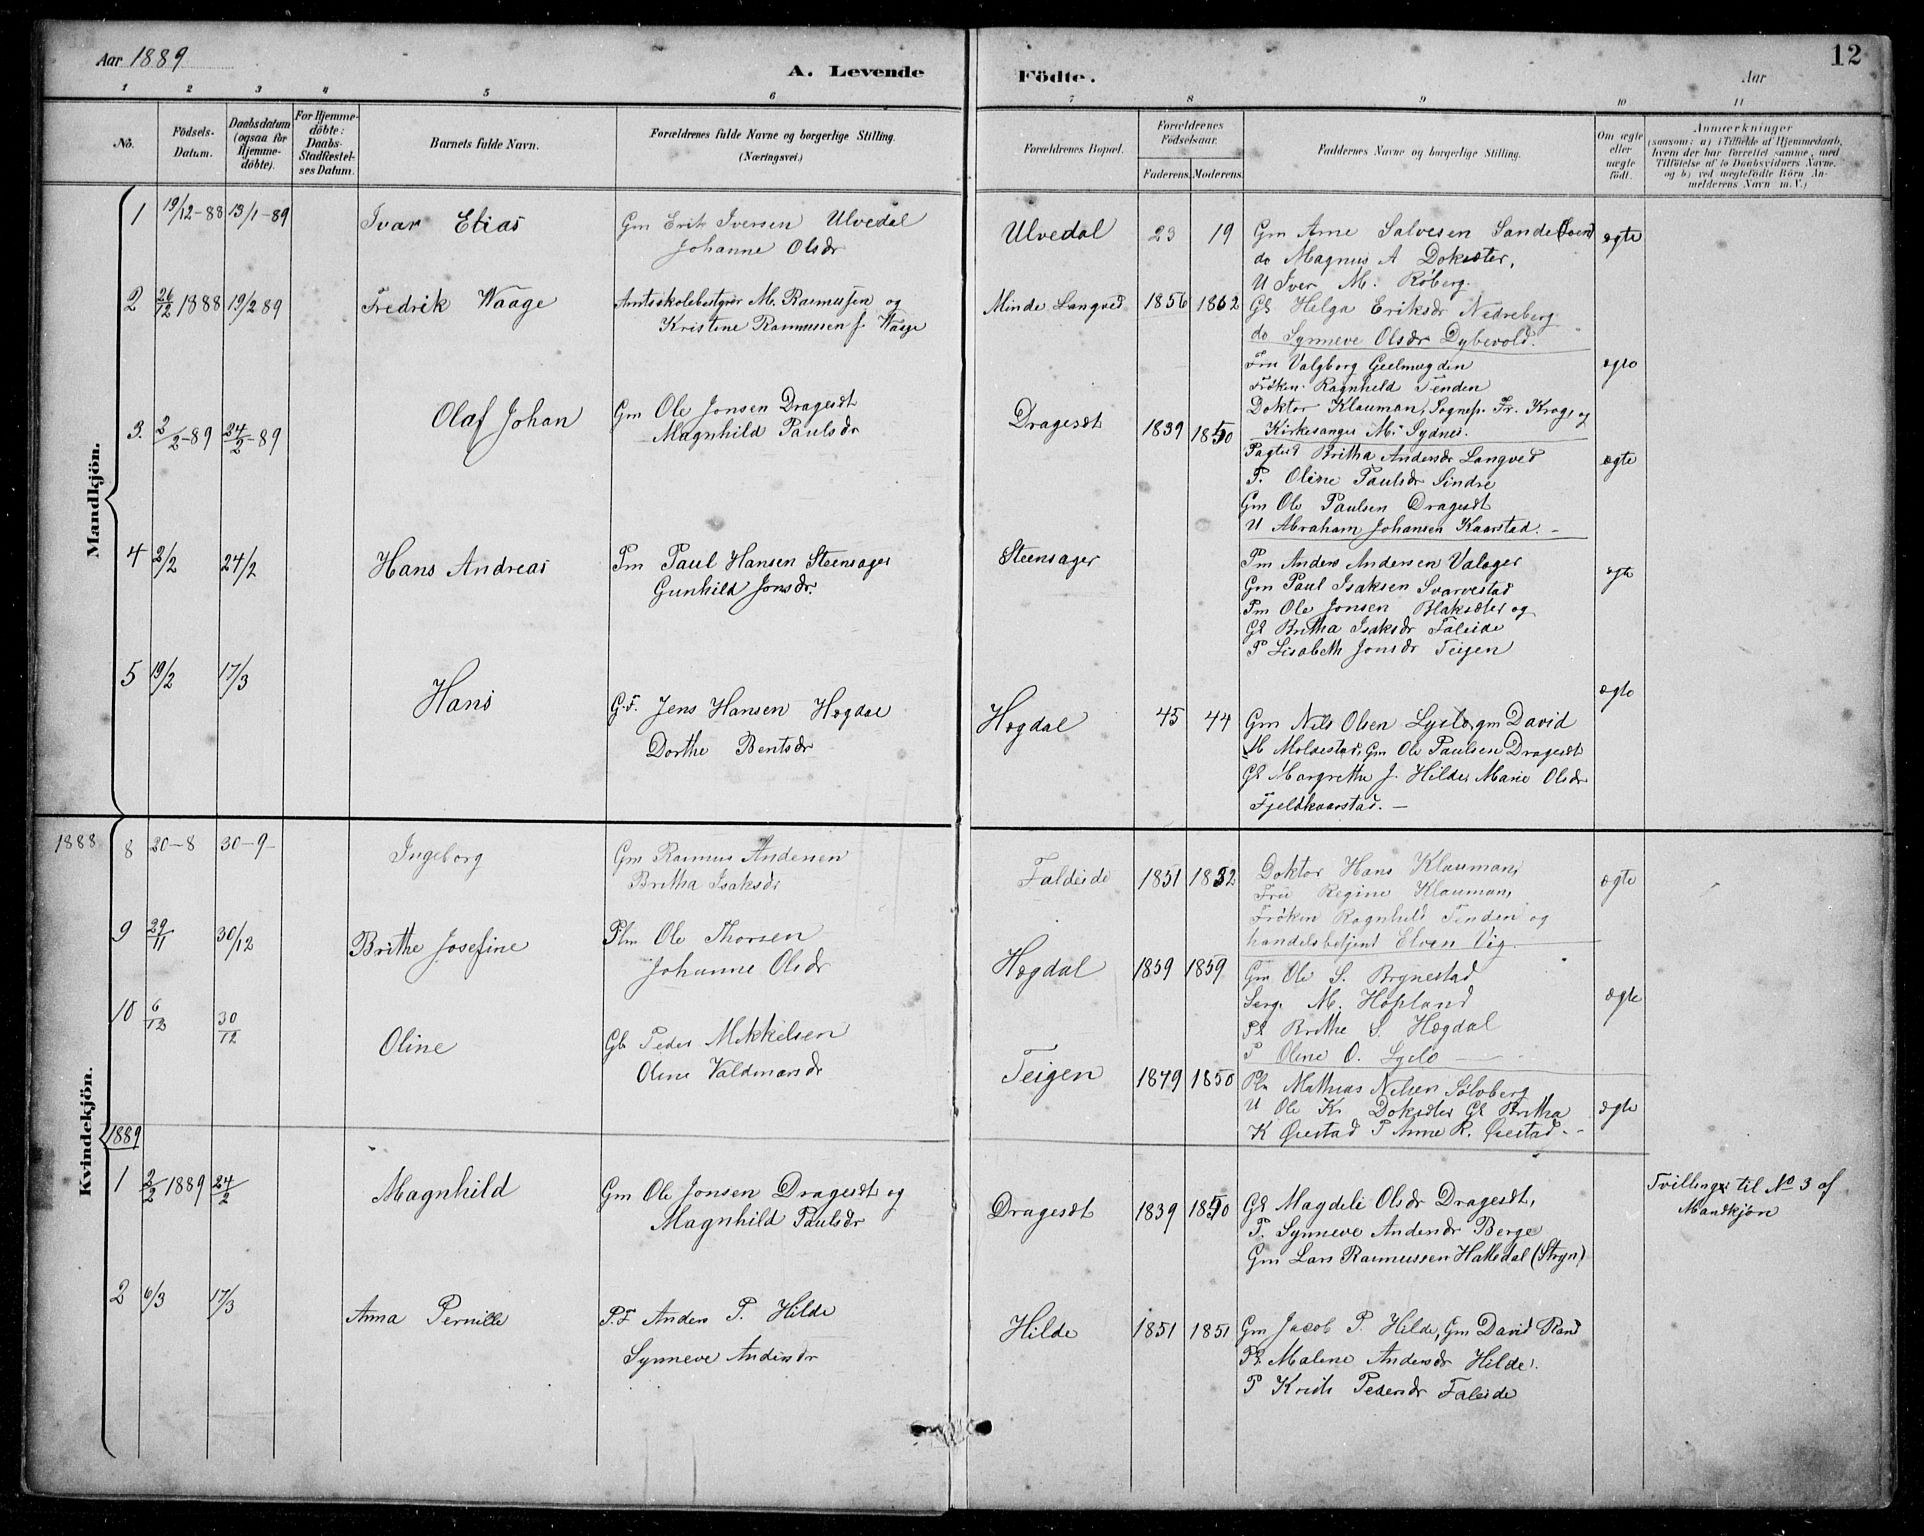 Aar 1889
A. Levende
Födte.
Aar
12
1 2 3 4 5 6 7 8 9 10 11
No.
Födsels-
Datum.
Daabsdatum
(ogsaa for
Hjemme-
döbte).
For Hjemme-
döbte:
Daabs-
Stadfæstel-
ses Datum.
Barnets fulde Navn.
Forældrenes fulde Navne og borgerlige Stilling.
(Næringsvei.)
Forældrenes Bopæl.
Forældrenes
Födselsaar.
Faderens. Moderens.
Faddernes Navne og borgerlige Stilling.
Om ægte
eller
uægte
födt.
Anmærkninger
(saasom: a) i Tilfælde af Hjemmedaab,
hvem der har forrettet samme, med
Tilföielse af to Daabsvidners Navne.
og b) ved uægtefödte Börn An-
melderens Navn m. V.)
Mandkjön.
1 19/12-88 13/1-89 Ivar Elias
Gm Erik Iversen Ulvedal
Johanne Olsdr
Ulvedal 23 19
Gm Arne Salvesen Sande
do Magnus A Doksæter,
U Iver M. Röberg.
Gk Helga Eriksdr Nedreberg
do Synneve Olsdr Dybevold.
ægte
2 26/12 1888 19/2 89 Fredrik Waage
Amtsskolebestyrer M. Rasmussen og
Kristine Rasmussen f. Waage
Minde Langved 1856 1862
Fru Valgborg Geelmuyden
Fröken Ragnhild Tenden
Doktor Klauman, Sognep. Fr. Krog og
Kirkesanger M. Sydnes.
ægte
3. 2/2-89 24/2-89 Olaf Johan
Gm Ole Jonsen Dragesæt
Magnhild Paulsdr
Dragesæt 1839 1850
Britha Andersdr Langved
P. Oline Paulsdr Sindre
Gm Ole Paulsen Dragesæt
U Abraham Johansen Kaarstad. -
ægte
4 2/2 24/2 Hans Andreas
Pm Paul Hansen Steensager
Gunhild Jonsdr.
Steensager
Pm Anders Andersen Valager
Gm Paul Isaksen Svarvestad
Pm Ole Jonsen Blaksæter og
Gk Britha Isaksdr Faleide
P Lisabeth Jonsdr Teigen
ægte
5 19/2 17/3 Hans
G.F. Jens Hansen Hogdal
Dorthe Bentsdr
Hogdal 45 44
Gm Nils Olsen Lyslo, gm David
M Moldestad, Gm Ole Paulsen Dragesæt
Gk Margrethe J. Hilde, Marie Olsdr
Fjeldkaarstad. -
ægte
Kvindekjön.
1888
8 20-8 30-9 Ingeborg
Gm Rasmus Andersen
Britha Isaksdr
Faldeide 1851 1852
Doktor Hans Klauman,
Fru Regine Klauman,
Fröken Ragnhild Tenden og
handelsbetjent Elven Vig.
ægte
9 29/11 30/12 Brithe Josefine
Plm Ole Thorsen
Johanne Olsdr
Hogdal 1859 1859
Gm Ole S. Brynestad
Serg. M. Hopland
Pk Brithe S. Hægdal
P Oline O. Lyslo
ægte
10 6/12 30/12 Oline
Gb Peder Mikkelsen
Oline Valdmarsdr
Teigen 1849 1850
Plm Mathias Nelsen Sölvberg
U Ole K. Doksæter Gk Britha
K Örestad P Anne R. Örestad. -
ægte
1889
1 2/2 1889 24/2 Magnhild
Gm Ole Jonsen Dragesæt og
Magnhild Paulsdr
Dragesæt 1839 1850
Gk Magdeli Olsdr Dragesæt,
P. Synneve Andersdr Berge
Gm Lars Rasmussen Hakedal (Stryn)
Tvillinger til No 3 af
Mandkjön
2 6/3 17/3 Anna Pernille
P.F Anders P. Hilde
Synneve Andersdr
Hilde 1851 1851
Gm Jacob P. Hilde, Gm David Rand
Pk Malene Andersdr Hilde.
P Pedersdr Faleide